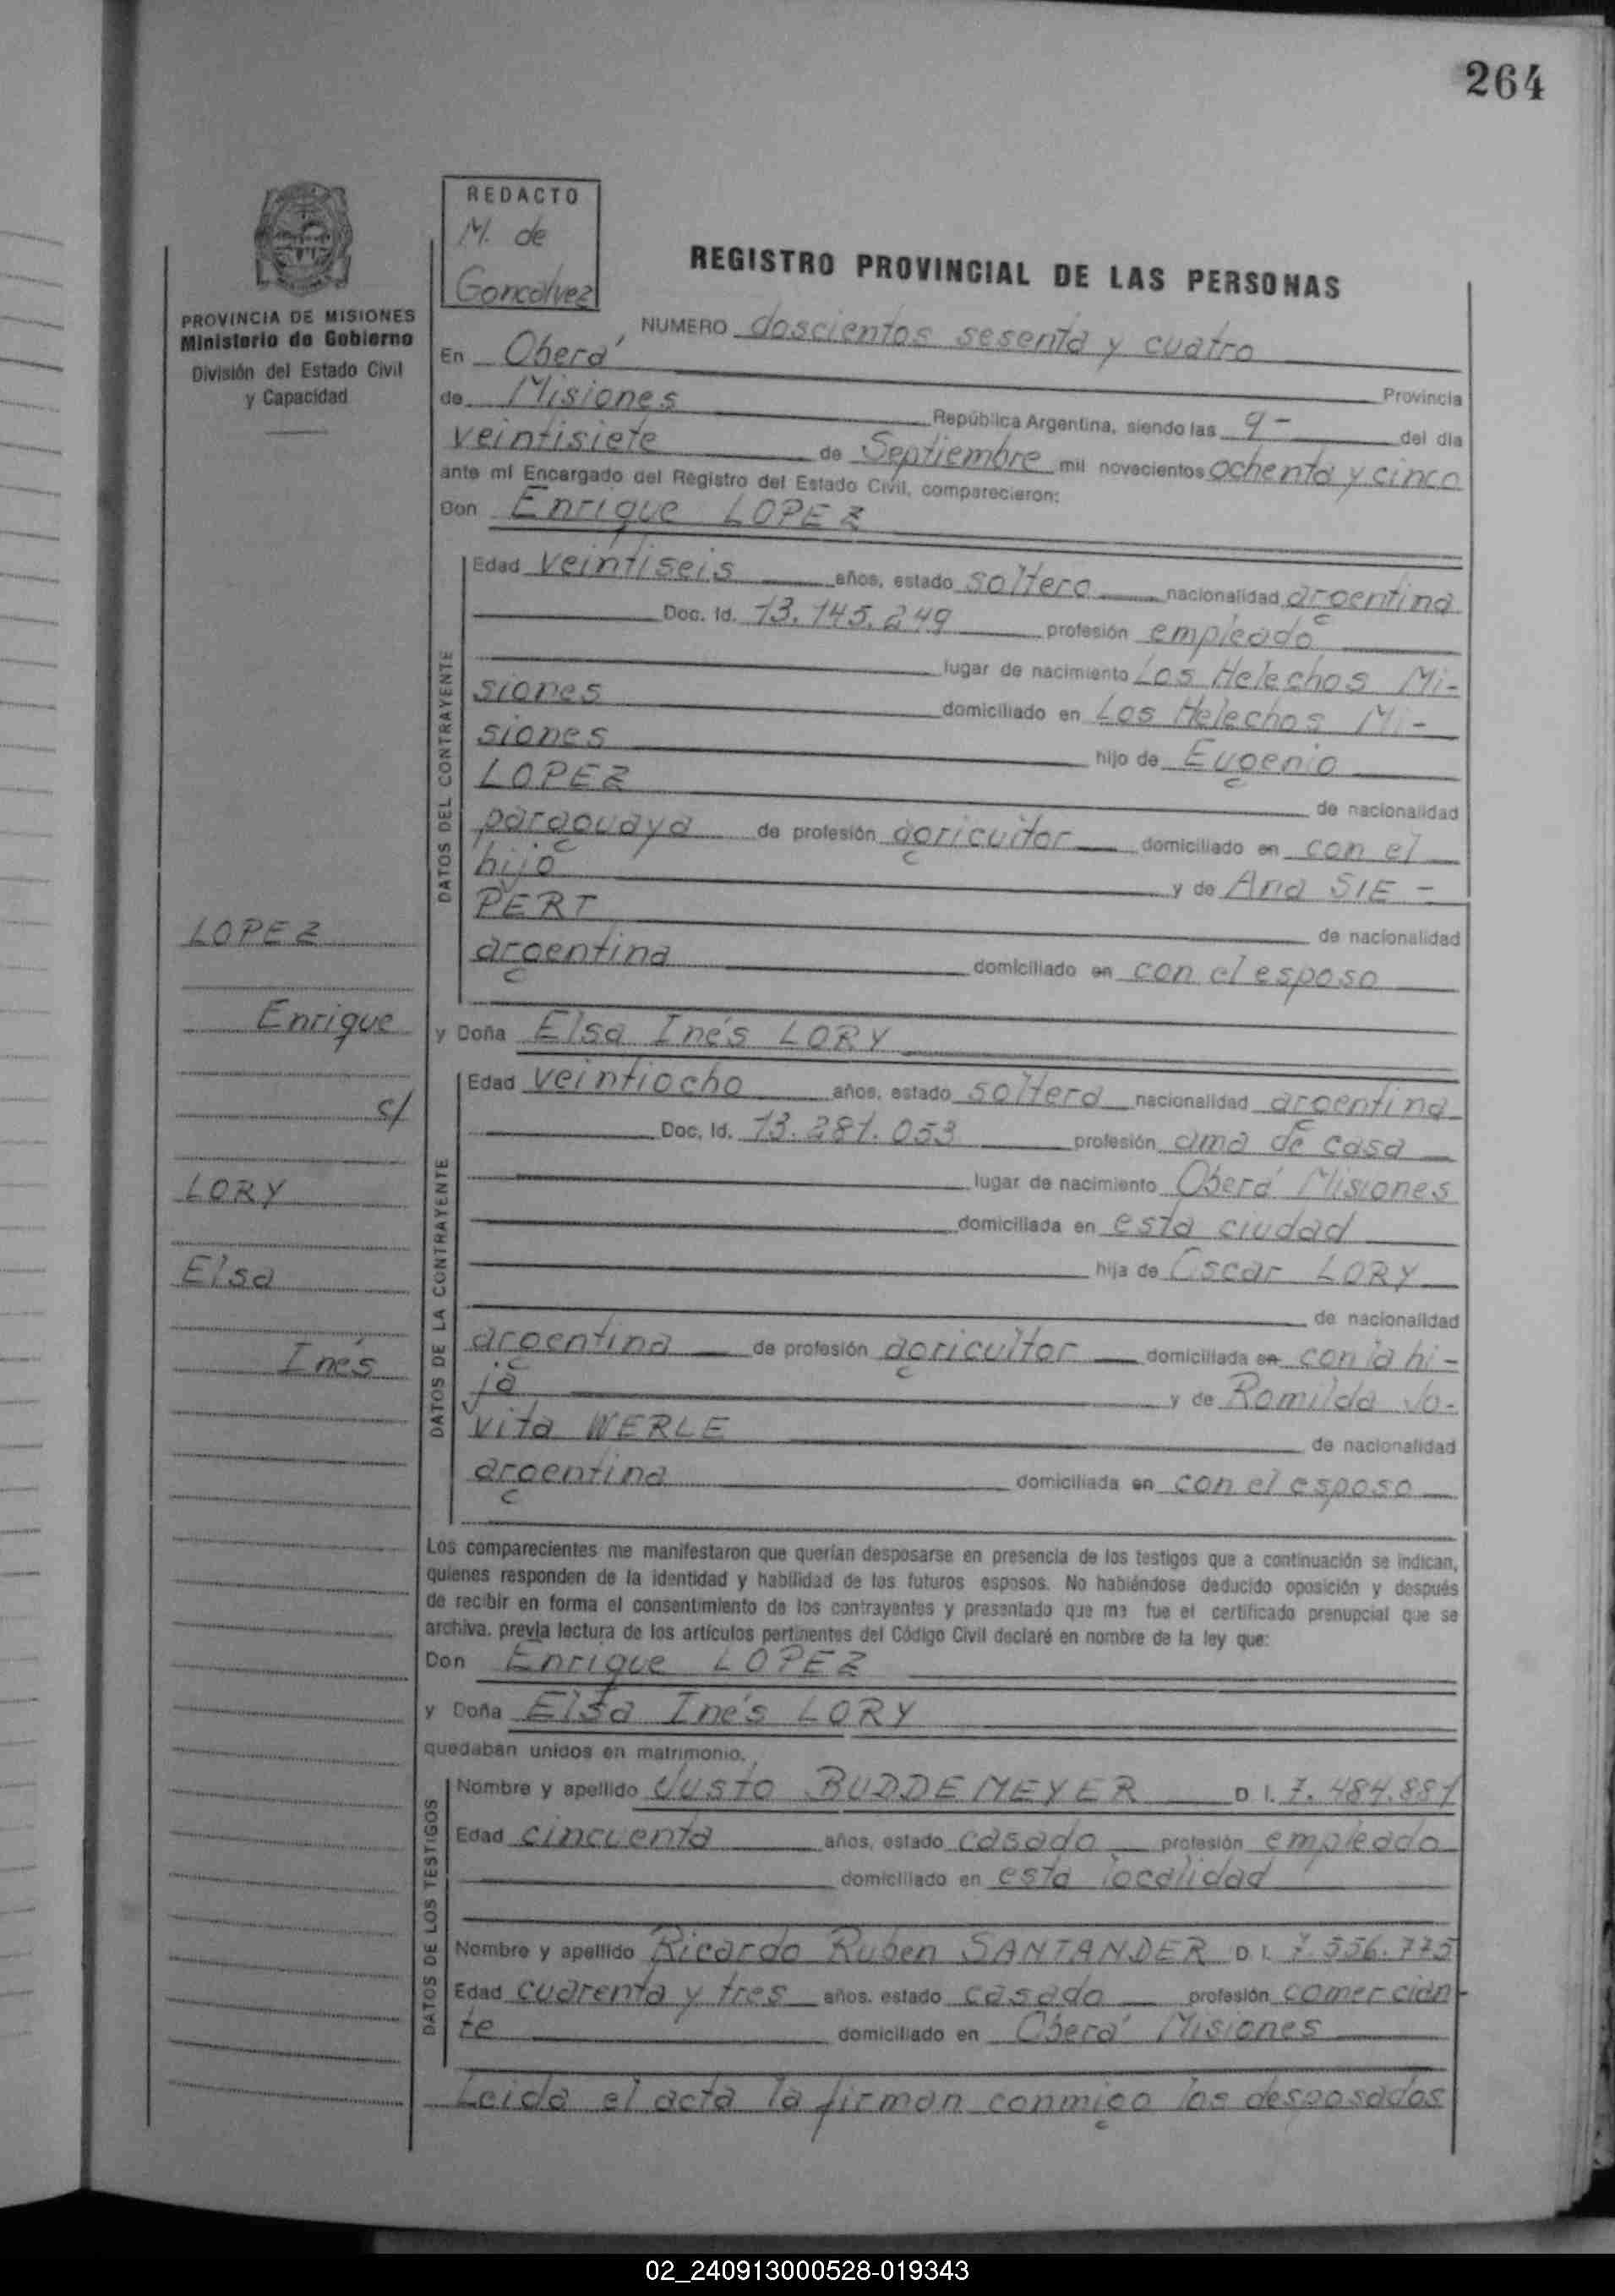 264
REDACTO
M. de
Goncalvez
PROVINCIA DE MISIONES
Ministerio de Gobierno
División del Estado Civil
y Capacidad
REGISTRO PROVINCIAL DE LAS PERSONAS
NUMERO doscientos sesenta y cuatro
En Oberá Provincia
de Misiones República Argentina, siendo las 9- del día
veintisiete de Septiembre mil novecientos ochenta y cinco
ante mí Encargado del Registro del Estado Civil, comparecieron:
Don Enrique LOPEZ
DATOS DEL CONTRAYENTE
Edad veintiseis años, estado soltero nacionalidad argentina
Doc. Id. 13.145.249 profesión empleado
lugar de nacimiento Los Helechos Mi-
siones domiciliado en Los Helechos Mi-
siones hijo de Eugenio
LOPEZ de nacionalidad
paraguaya de profesión agricultor domiciliado en con el
hijo y de Ana SIE-
PERT de nacionalidad
argentina domiciliado en con el esposo
LOPEZ
Enrique
c/
LORY
Elsa
Inés
y Doña Elsa Inés LORY
DATOS DE LA CONTRAYENTE
Edad veintiocho años, estado soltera nacionalidad argentina
Doc. Id. 13.281.053 profesión ama de casa
lugar de nacimiento Oberá Misiones
domiciliada en esta ciudad
hija de Oscar LORY
de nacionalidad
argentina de profesión agricultor domiciliada en con la hi-
ja y de Romilda Jo-
vita WERLE de nacionalidad
argentina domiciliada en con el esposo
Los comparecientes me manifestaron que querían desposarse en presencia de los testigos que a continuación se indican,
quienes responden de la identidad y habilidad de los futuros esposos. No habiéndose deducido oposición y después
de recibir en forma el consentimiento de los contrayentes y presentado que me fue el certificado prenupcial que se
archiva, previa lectura de los artículos pertinentes del Código Civil declaré en nombre de la ley que:
Don Enrique LOPEZ
y Doña Elsa Inés LORY
quedaban unidos en matrimonio.
DATOS DE LOS TESTIGOS
Nombre y apellido Justo BUDDEMEYER D I. 7.484.881
Edad cincuenta años, estado casado profesión empleado
domiciliado en esta localidad
Nombre y apellido Ricardo Ruben SANTANDER D. I. 7.556.775
Edad cuarenta y tres años. estado casado profesión comercian-
te domiciliado en Oberá Misiones
Leida el acta la firman conmigo los desposados
02_240913000528-019343